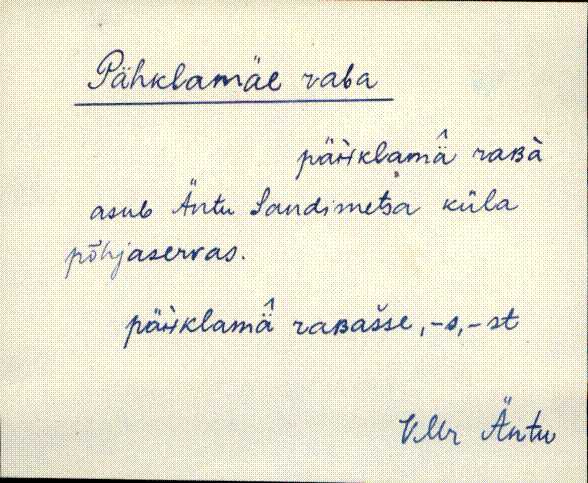 Pähklamäe raba
päiʜklamä̂ raʙà
asub Äntu Sandimetsa küla
põhjaservas.
päiʜklamä̂ raʙašse, -s, -st
VMr Äntu